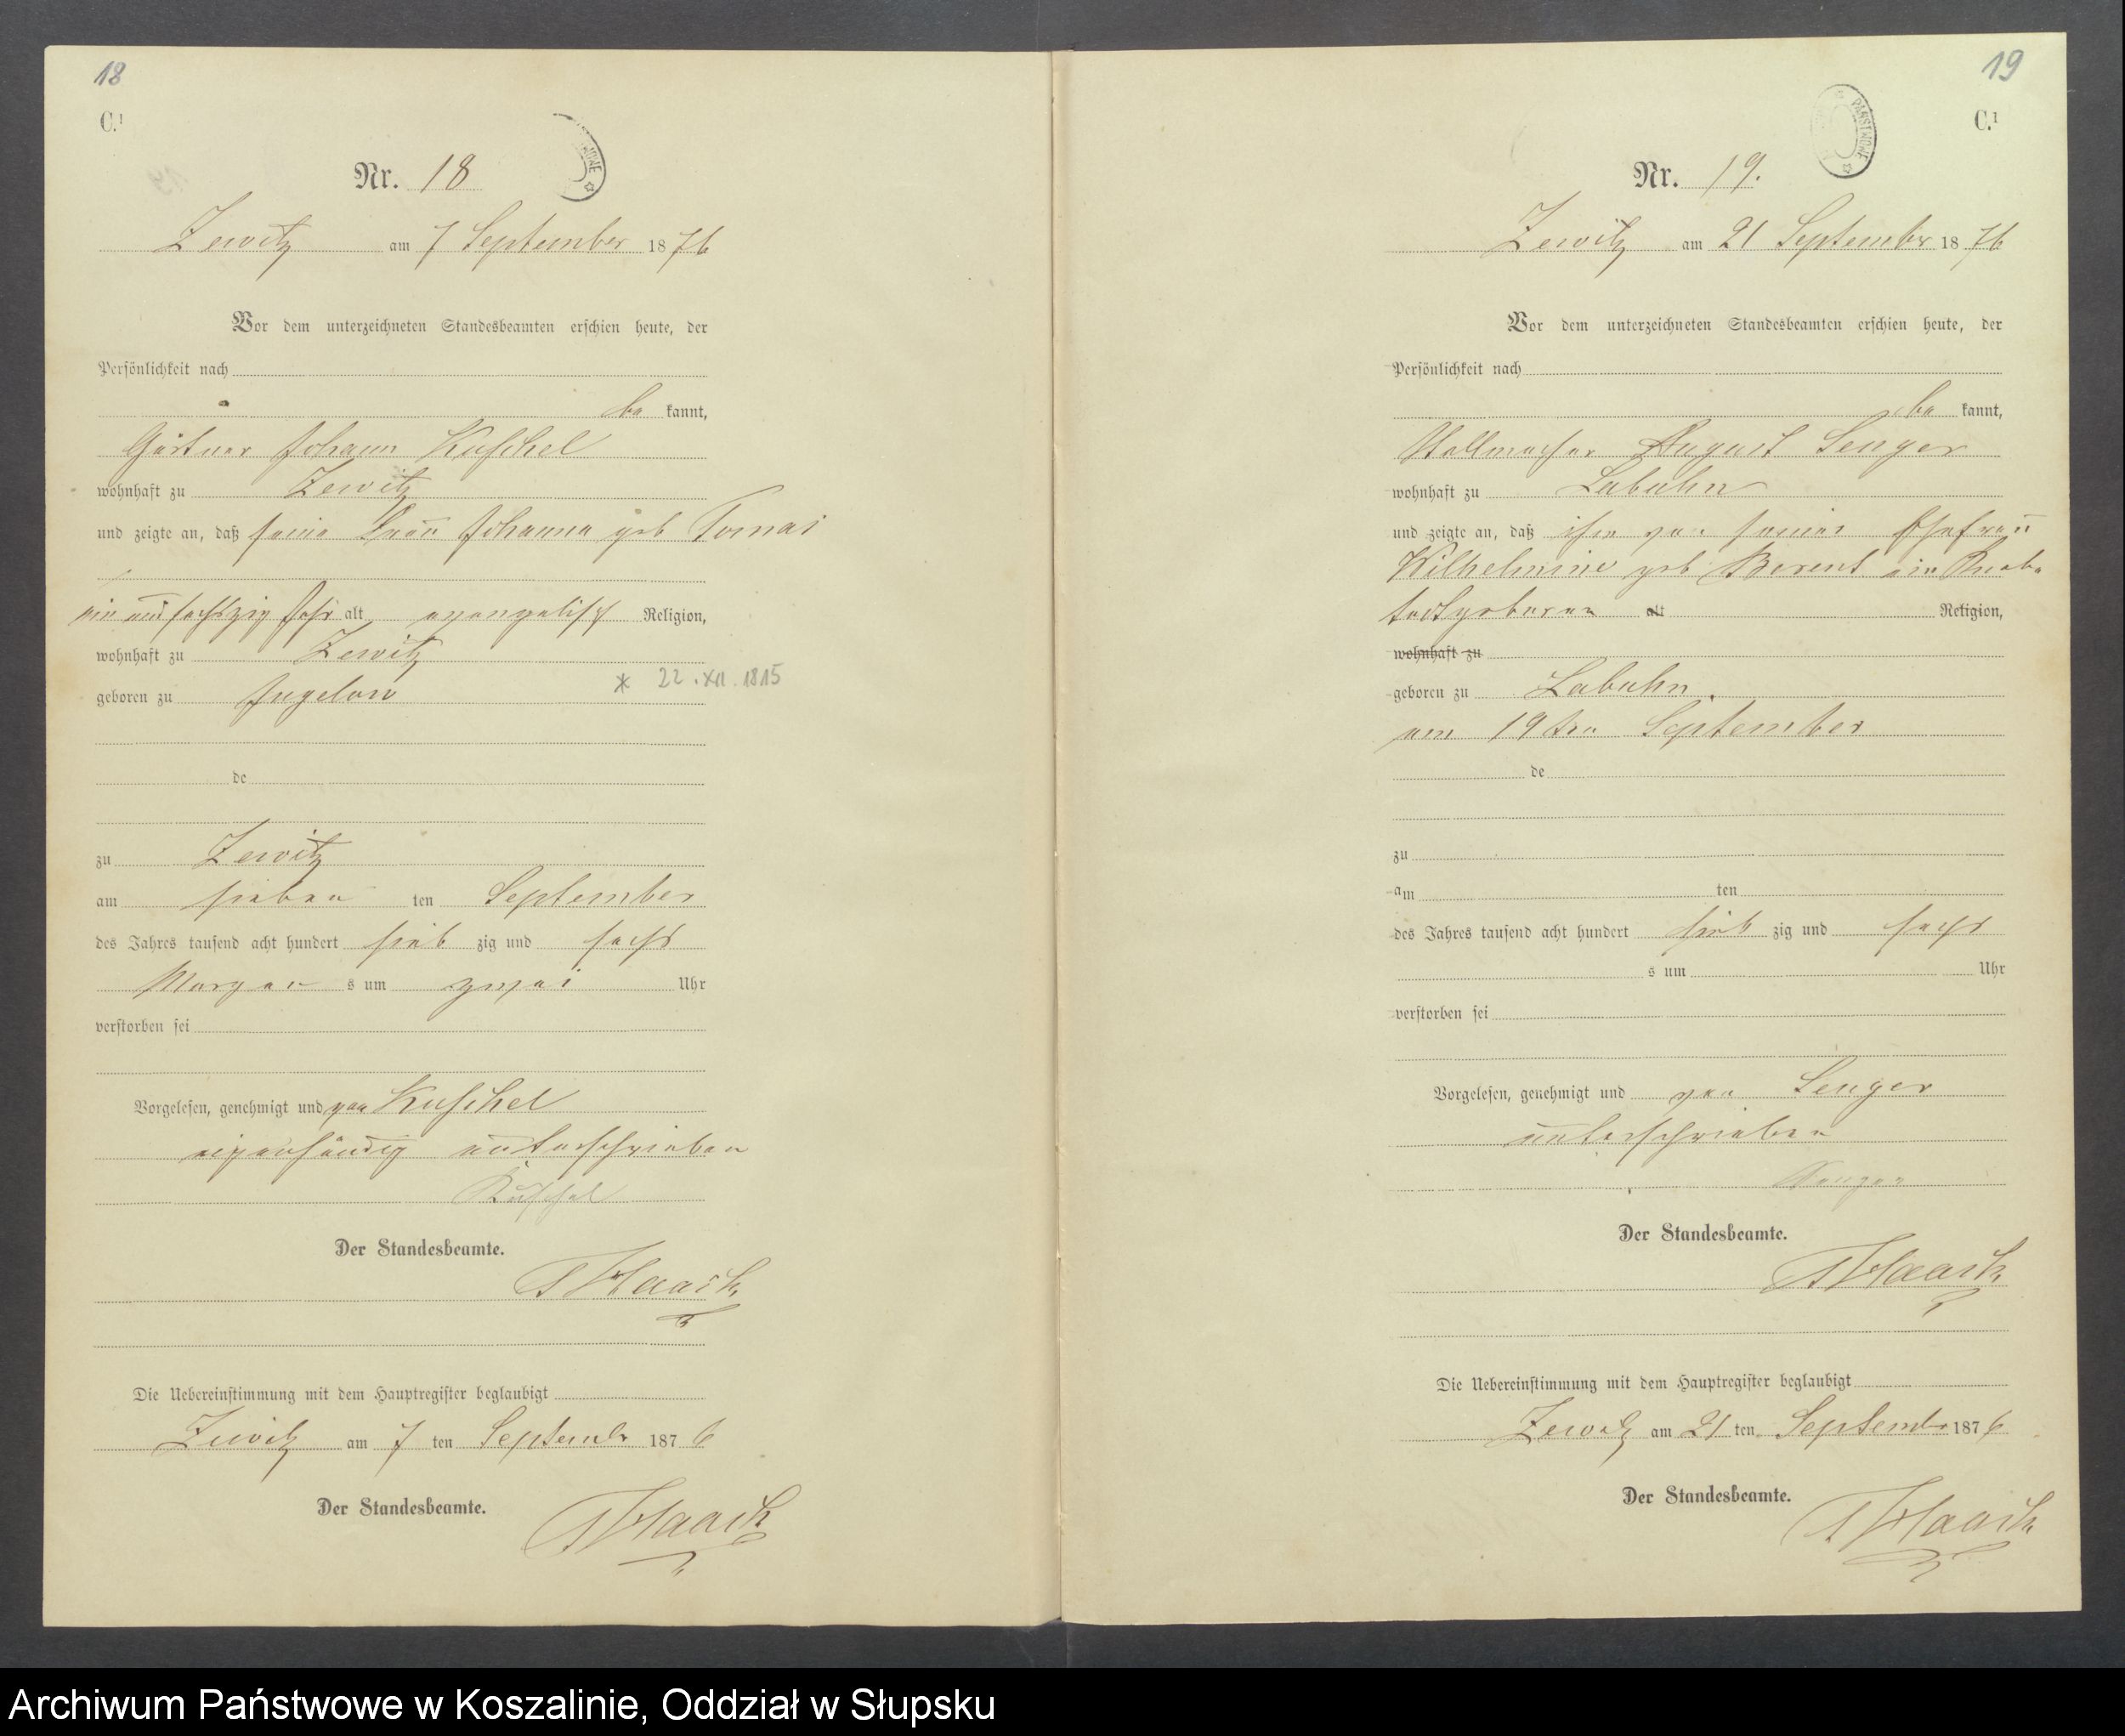 18
C.¹
Nr. 18
Zewitz am 7 September 1876
Vor dem unterzeichneten Standesbeamten erschien heute, der
Persönlichkeit nach
be kannt,
Gärtner Johann Kuschel
wohnhaft zu Zewitz
und zeigte an, daß seine Frau Johanna geb Tomai
ein und sechszig Jahr alt evangelisch Religion,
wohnhaft zu Zewitz
geboren zu * 22.XII.1815
de
zu Zewitz
am sieben ten September
des Jahres tausend acht hundert sieb zig und sechs
Morgen s um zwei Uhr
verstorben sei
Vorgelesen, genehmigt und von Kuschel
eigenhändig unterschrieben
Kuschel
Der Standesbeamte.
Haack
Die Uebereinstimmung mit dem Hauptregister beglaubigt
Zewitz am 7 ten Septembr 1876
Der Standesbeamte.
Haack
19
PAŃSTWOWE
C.¹
Nr. 19.
Zewitz am 21 September 1876
Vor dem unterzeichneten Standesbeamten erschien heute, der
Persönlichkeit nach
be kannt,
Stellmacher August Senger
wohnhaft zu Labuhn
und zeigte an, daß ihm von seiner Ehefrau
Wilhelmine geb Berent ein Knabe
todtgeboren alt Religion,
wohnhaft zu
geboren zu Labuhn.
am 19ten September
de
zu
am ten
des Jahres tausend acht hundert sieb zig und sechs
s um Uhr
verstorben sei
Vorgelesen, genehmigt und von Senger
unterschrieben
Senger
Der Standesbeamte.
Haack
Die Uebereinstimmung mit dem Hauptregister beglaubigt
Zewitz am 21 ten Septembr 1876
Der Standesbeamte.
Haack
Archiwum Państwowe w Koszalinie, Oddział w Słupsku